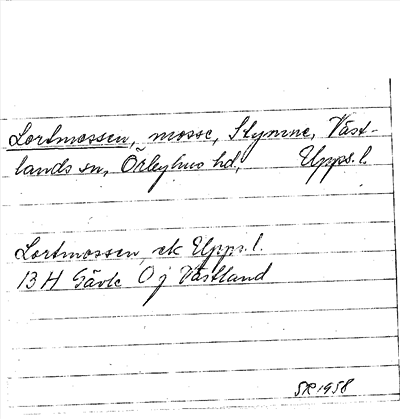 Lortmossen, mosse, Slymne, Väst-
lands sn, Örbyhus hd, Upps. l.
Lortmossen, ek Upps. l.
13 H Gävle 0 j Västland
SR 1958